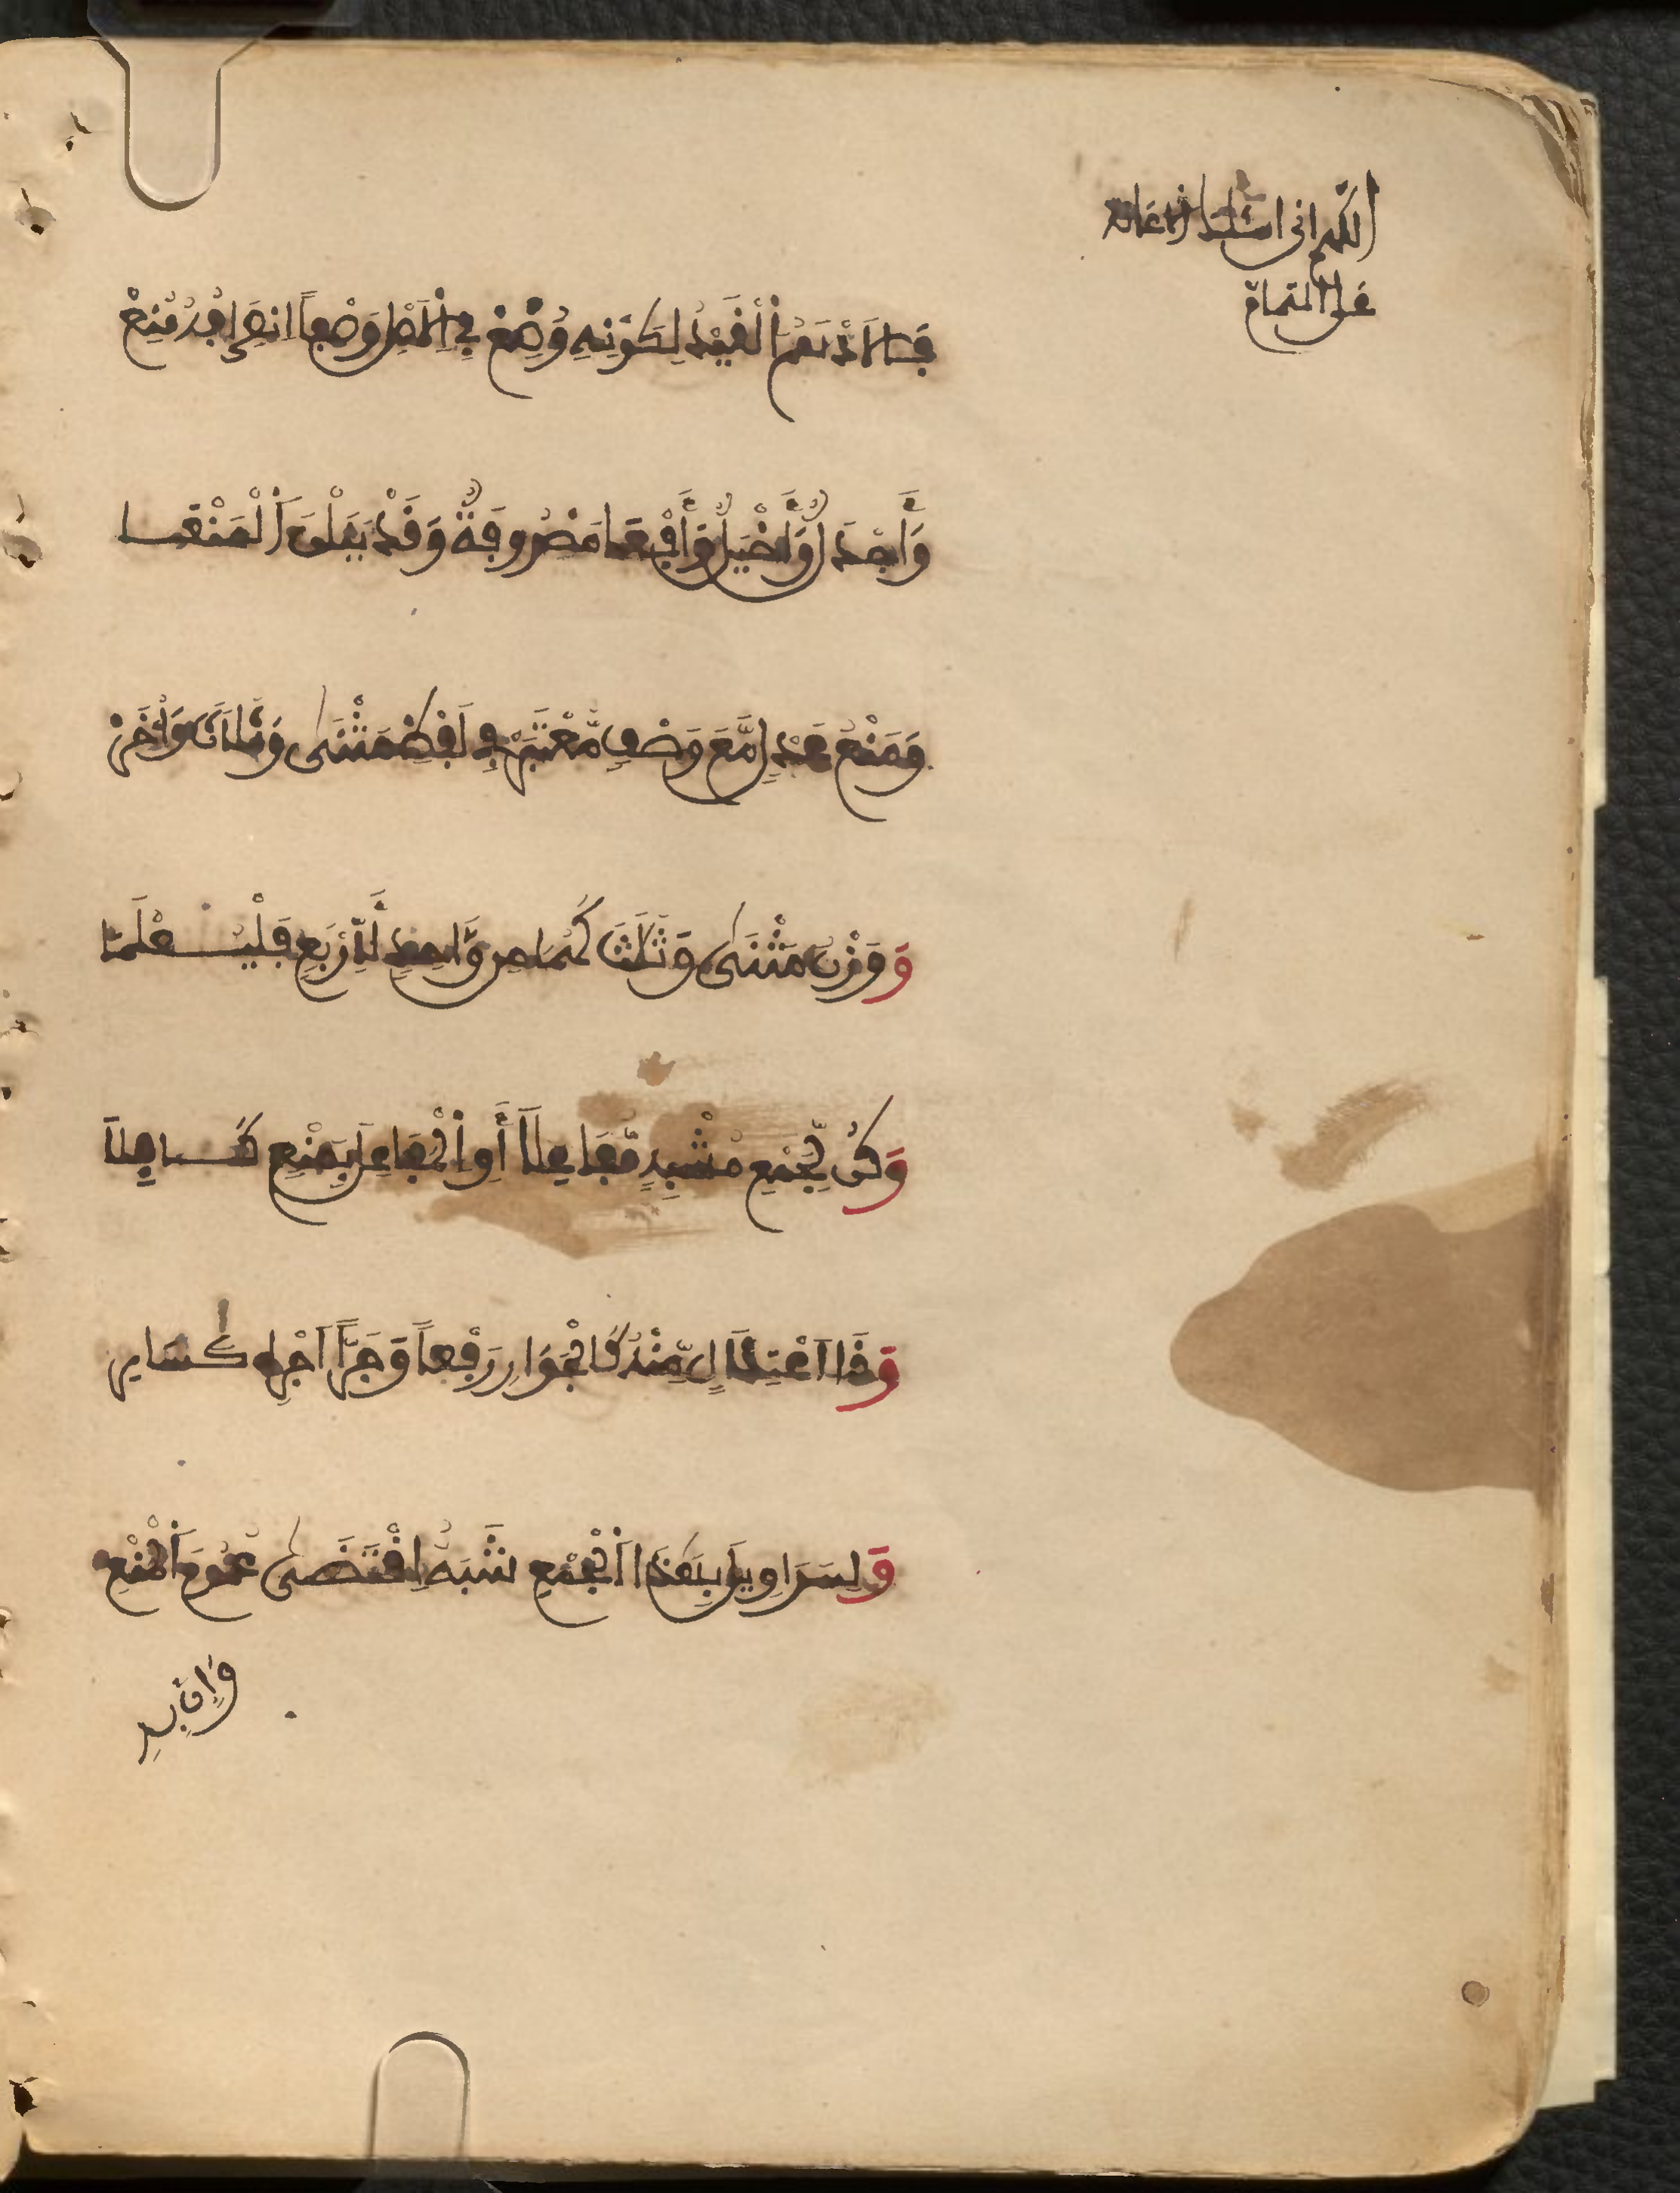 اللهم اني اسئلك الاعانة
على التمام
فَالَادْهَمُ اَلْقَيْدُ لِكَوْنِهِ وُضِعْ فِي اِلَاصْلِ وَصْفاً اِنْصِرَافُهُ مُنِعْ
وَأَجْدَلٌ وَأَخْيَلٌ وَأَفْعَا مَصْرُوفَةٌ وَقَدْ يَنَلْنَ اَلْمَنْعَا
وَمَنْعُ عَدْلٍ مَّعَ وَصْفٍ مُّعْتَبَرْ فِي لَفْظِ مَثْنَى وَثُلَاثَ وَأُخَرْ
وَوَزْنُ مَثْنَى وَثُلَثَ كَهُمَا مِن وَّاحِدٍ لِّأَرْبَعٍ فَلْيُـــعْلَمَا
وَكُن لِّجَمْعٍ مُشْبِهٍ مَّفَاعِلَا أَوِ اِلْمَفَاعِيلَ بِمَنْعٍ كَـــافِلَا
وَذَا اَعْتِلَالٍ مِّنْهُ كَالْجَوَارِ رَفْعاً وَجَرّاً اَجْرِهِ كَسَارِ
وَلِسَرَاوِيلَ بِهَذَا اَلْجَمْعِ شَبَهٌ اِقْتَضَى عُمُومَ اَلْمَنْعِ
وإن به